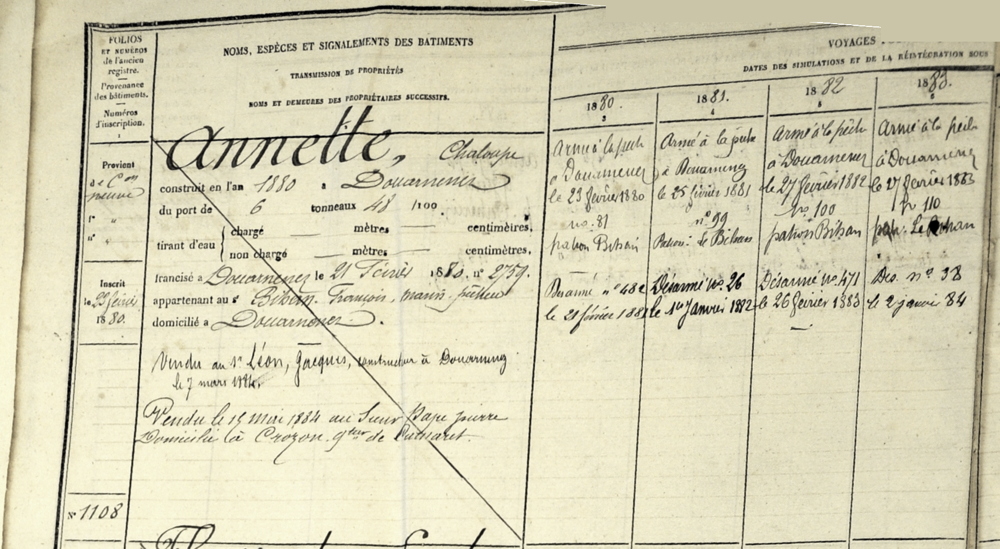 FOLIOS
ET NUMÉROS
de l'ancien
registre.
Provenance
des bâtiments.
Numéros
d'inscription.
NOMS, ESPÈCES ET SIGNALEMENTS DES BATIMENTS
TRANSMISSION DE PROPRIÉTÉS
NOMS ET DEMEURES DES PROPRIÉTAIRES SUCCESSIFS.
VOYAGES
DATES DES SIMULATIONS ET DE LA RÉINTÉGRATION SOUS
1880.
1881.
1882
1883.
Provient
neuve
Annette, Chaloupe
construit en l'an 1880 à Douarnenez
du port de 6 tonneaux 48 /100.
tirant d'eau
chargé mètres centimètres.
non chargé mètres centimètres.
francisé à Douarnenez le 21 Février 1880. n° 2759.
appartenant au Sr Bihan François, marin pêcheur
domicilié à Douarnenez.
Inscrit
le 23 février
1880.
Vendu au Sr Léon, Jacques, constructeur à Douarnenez
le 7 mars 1884.
Vendu le 15 mai 1884 au Sieur pierre
Domicilié à Crozon. qtier de Camaret.
N° 1108
Armé à la pêche
à Douarnenez
le 23 février 1880
no. 81
patron Bihan
Désarmé n° 482
le 21 février 1881
Armé à la pêche
à Douarnenez
le 25 février 1881
n° 99
Patron: le Bihan
Désarmé no. 26
le 1er Janvier 1882
Armé à la pêche
à Douarnenez
le 27 février 1882
No 100
patron Bihan
Désarmé no. 471
le 26 février 1883
Armé à la pêche
à Douarnenez
le 27 février 1883
no 110
patr. Le Bihan
Des. n° 38
le 2 janvier 84